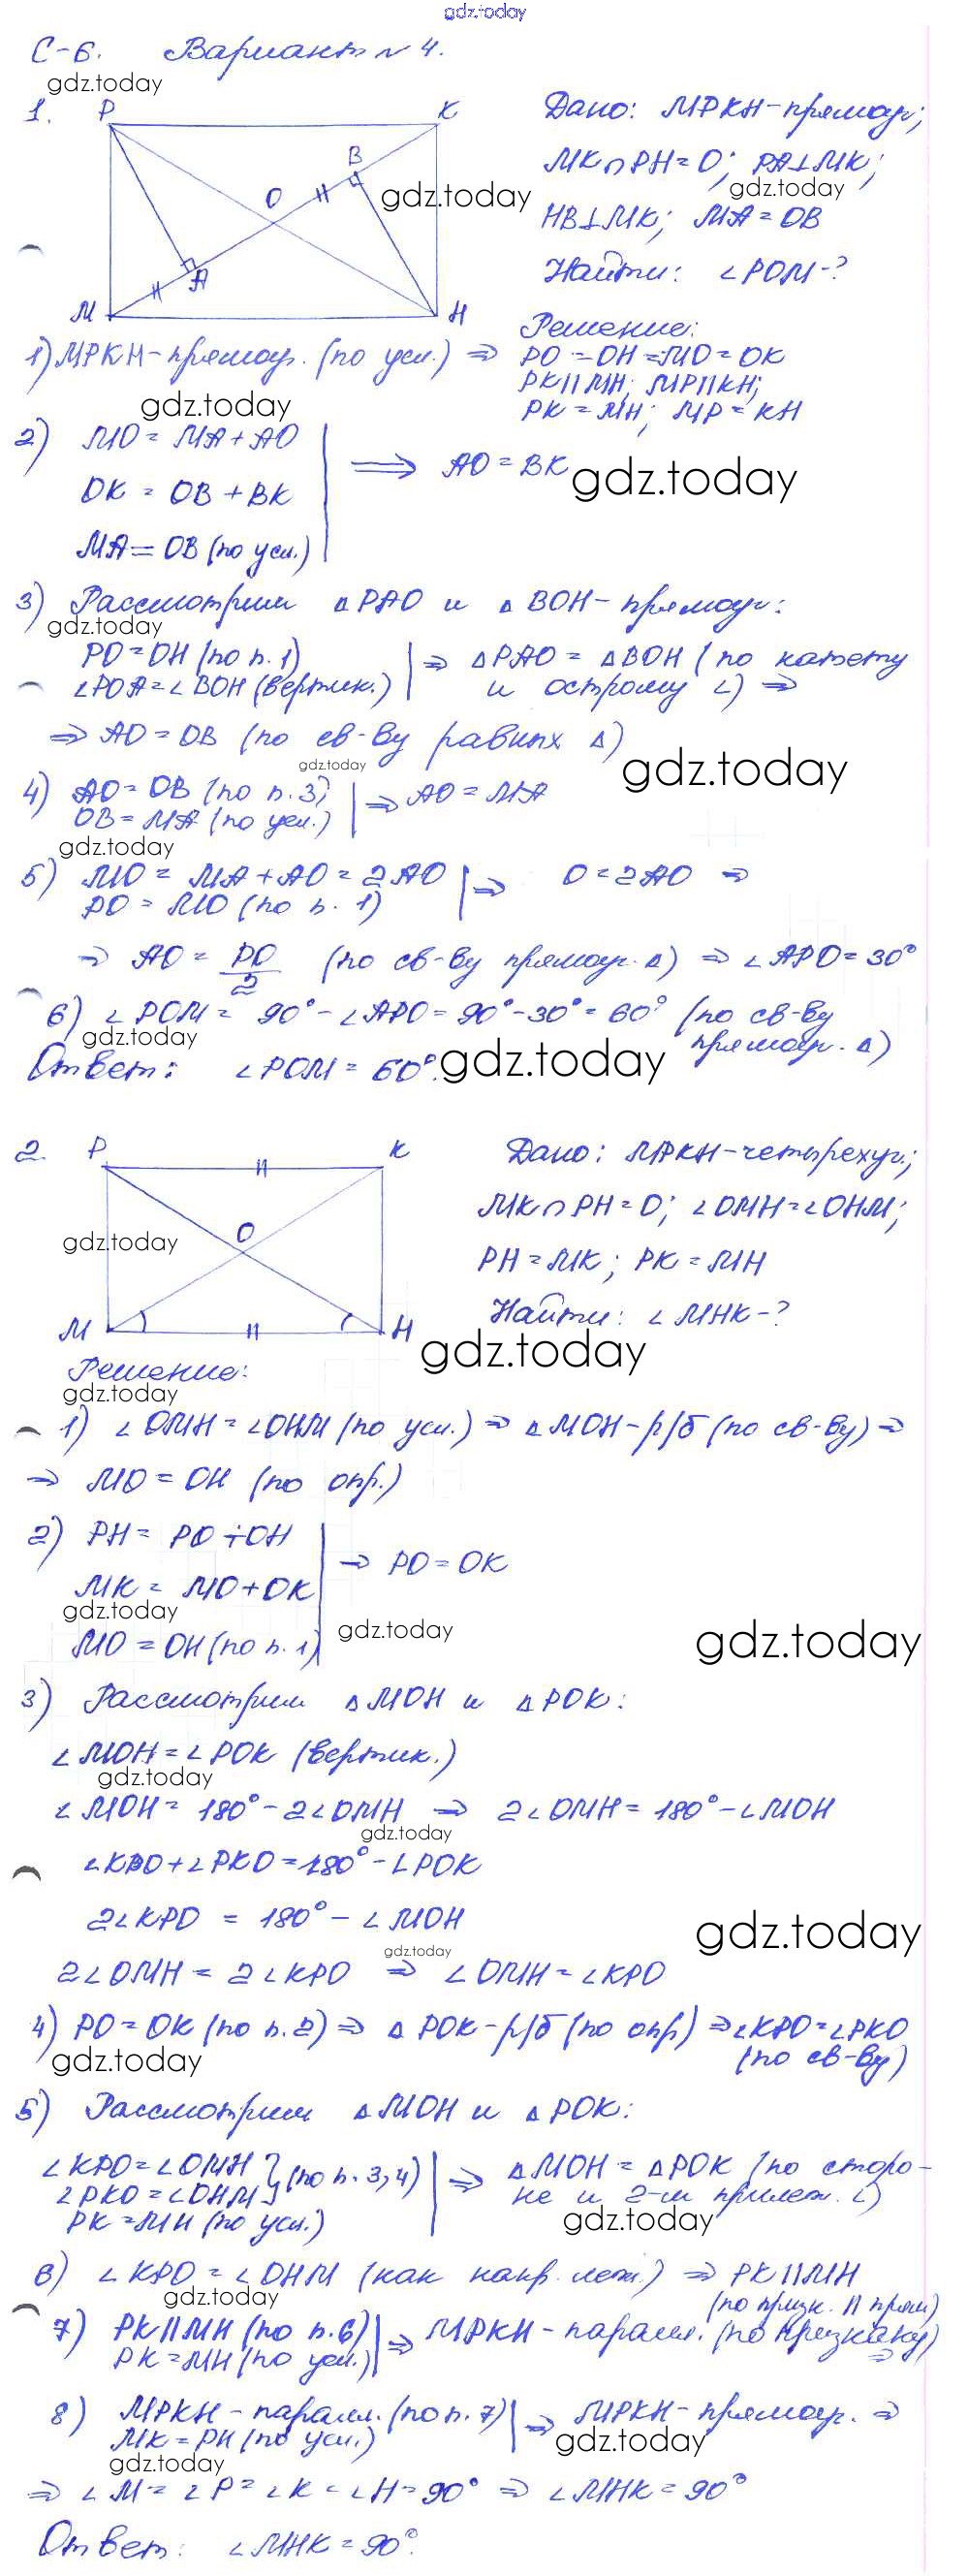 gdz.today
С-6. Вариант № 4.
gdz.today
1. P K B O A M H
gdz.today
Дано: MPKH-прямоуг;
MK∩PH=O; PA⊥MK;
gdz.today
HB⊥MK; MA=OB
Найти: ∠POM-?
Решение:
1) MPKH-прямоуг. (по усл.) ⇒ PO=OH=MO=OK
PK||MH; MP||KH;
PK=MH; MP=KH
gdz.today
2) MO = MA+AO
OK = OB+BK ⇒ AO=BK
gdz.today
MA=OB (по усл.)
3) Рассмотрим △PAO и △BOH-прямоуг:
gdz.today
PO=OH (по п. 1) ⇒ △PAO = △BOH (по катету
∠POA=∠BOH (вертик.) и острому ∠) ⇒
⇒ AO=OB (по св-ву равных △)
gdz.today
gdz.today
4) AO=OB (по п. 3) ⇒ AO=MA
OB=MA (по усл.)
gdz.today
5) MO = MA+AO=2AO ⇒ O=2AO ⇒
PO=MO (по п. 1)
⇒ AO = PO/2 (по св-ву прямоуг. △) ⇒ ∠APO=30°
6) ∠POM= 90°-∠APO=90°-30°=60° (по св-ву
прямоуг. △)
gdz.today
Ответ: ∠POM=60°.
gdz.today
2. P K O M H
Дано: MPKH-четырехуг.;
MK∩PH=O; ∠OMH=∠OHM;
gdz.today
PH=MK; PK=MH
Найти: ∠MHK-?
gdz.today
Решение:
gdz.today
1) ∠OMH=∠OHM (по усл.) ⇒ △MOH-р/б (по св-ву) ⇒
⇒ MO=OH (по опр.)
2) PH= PO+OH
MK= MO+OK ⇒ PO=OK
gdz.today
MO=OH (по п. 1)
gdz.today
gdz.today
3) Рассмотрим △MOH и △POK:
∠MOH=∠POK (вертик.)
gdz.today
∠MOH= 180°-2∠OMH ⇒ 2∠OMH=180°-∠MOH
gdz.today
∠KPO+∠PKO=180°-∠POK
2∠KPO = 180°-∠MOH
gdz.today
gdz.today
2∠OMH = 2∠KPO ⇒ ∠OMH=∠KPO
4) PO=OK (по п. 2) ⇒ △POK-р/б (по опр) ⇒ ∠KPO=∠PKO
(по св-ву)
gdz.today
5) Рассмотрим △MOH и △POK:
∠KPO=∠OMH } (по п. 3,4) ⇒ △MOH = △POK (по сторо-
∠PKO=∠OHM не и 2-м прилеж. ∠)
PK=MH (по усл.)
gdz.today
6) ∠KPO=∠OHM (как накр. леж.) ⇒ PK||MH
gdz.today
(по призн. || прям)
7) PK||MH (по п. 6) ⇒ MPKH-паралл. (по признаку)
PK=MH (по усл.) ⇒
8) MPKH-паралл. (по п. 7) ⇒ MPKH-прямоуг. ⇒
MK=PH (по усл.)
gdz.today
gdz.today
⇒ ∠M=∠P=∠K=∠H=90° ⇒ ∠MHK=90°
Ответ: ∠MHK=90°.